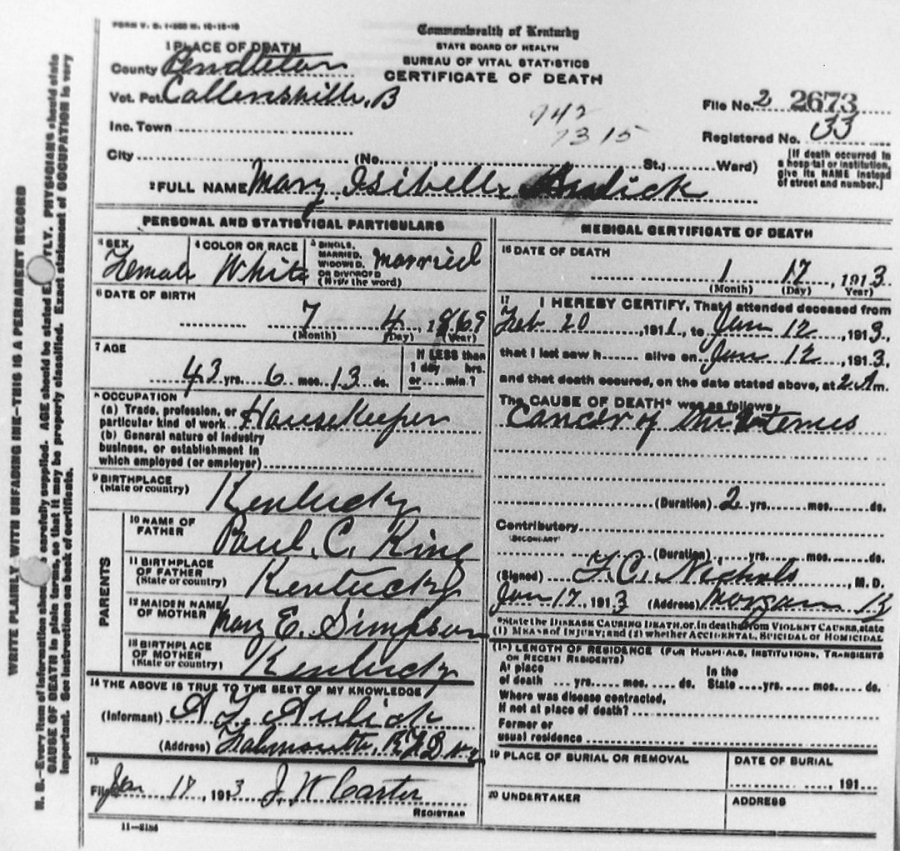 FORM V. S. 1-
Commonwealth of Kentucky
STATE BOARD OF HEALTH
BUREAU OF VITAL STATISTICS
CERTIFICATE OF DEATH
1 PLACE OF DEATH
County Pendleton
Vot. Pct. Callensville, B
Inc. Town
City (No. , St.; Ward)
942
7315
File No. 2 2673
Registered No. 33
[If death occurred in
a hospital or institution,
give its NAME instead
of street and number.]
2 FULL NAME Mary Isibelle Aulick
PERSONAL AND STATISTICAL PARTICULARS
3 SEX Female
4 COLOR OR RACE White
5 SINGLE,
MARRIED,
WIDOWED,
OR DIVORCED
(Write the word)
Married
6 DATE OF BIRTH
7 4, 1869
(Month) (Day) (Year)
7 AGE
43 yrs. 6 mos. 13 ds.
If LESS than
1 day hrs.
or min.?
8 OCCUPATION
(a) Trade, profession, or
particular kind of work HouseKeeper
(b) General nature of industry
business, or establishment in
which employed (or employer)
9 BIRTHPLACE
(State or country) Kentucky
PARENTS
10 NAME OF
FATHER Paul. C. King
11 BIRTHPLACE
OF FATHER
(State or country) Kentucky
12 MAIDEN NAME
OF MOTHER Mary E. Simpson
13 BIRTHPLACE
OF MOTHER
(State or country) Kentucky
14 THE ABOVE IS TRUE TO THE BEST OF MY KNOWLEDGE
(Informant) A. L. Aulick
(Address) Falmouth, R.F.D. No 2
15
Filed Jan 18, 1913 J. W. Carter
REGISTRAR
11—3184
MEDICAL CERTIFICATE OF DEATH
16 DATE OF DEATH
1 17, 1913
(Month) (Day) (Year)
17 I HEREBY CERTIFY, That I attended deceased from
Feb 20, 1911, to Jan 12, 1913,
that I last saw h alive on Jan 12, 1913,
and that death occured, on the date stated above, at 2 A m.
The CAUSE OF DEATH* was as follows:
Cancer of the Uterus
(Duration) 2 yrs. mos. ds.
Contributory
(SECONDARY)
(Duration) yrs. mos. ds.
(Signed) Nichols, M. D.
Jan 17, 1913 (Address) Morgan
*State the DISEASE CAUSING DEATH, or, in deaths from VIOLENT CAUSES, state
(1) MEANS OF INJURY; and (2) whether ACCIDENTAL, SUICIDAL or HOMICIDAL
LENGTH OF RESIDENCE (FOR HOSPITALS, INSTITUTIONS, TRANSIENTS
OR RECENT RESIDENTS)
At place In the
of death yrs. mos. ds. State yrs. mos. ds.
Where was disease contracted,
if not at place of death?
Former or
usual residence
19 PLACE OF BURIAL OR REMOVAL
DATE OF BURIAL
, 191
20 UNDERTAKER
ADDRESS
WRITE PLAINLY WITH UNFADING INK—THIS IS A PERMANENT RECORD
N. B.—Every item of information should be carefully supplied. AGE should be stated EXACTLY. PHYSICIANS should state
CAUSE OF DEATH in plain terms, so that it may be properly classified. Exact statement of OCCUPATION is very
important. See instructions on back of certificate.